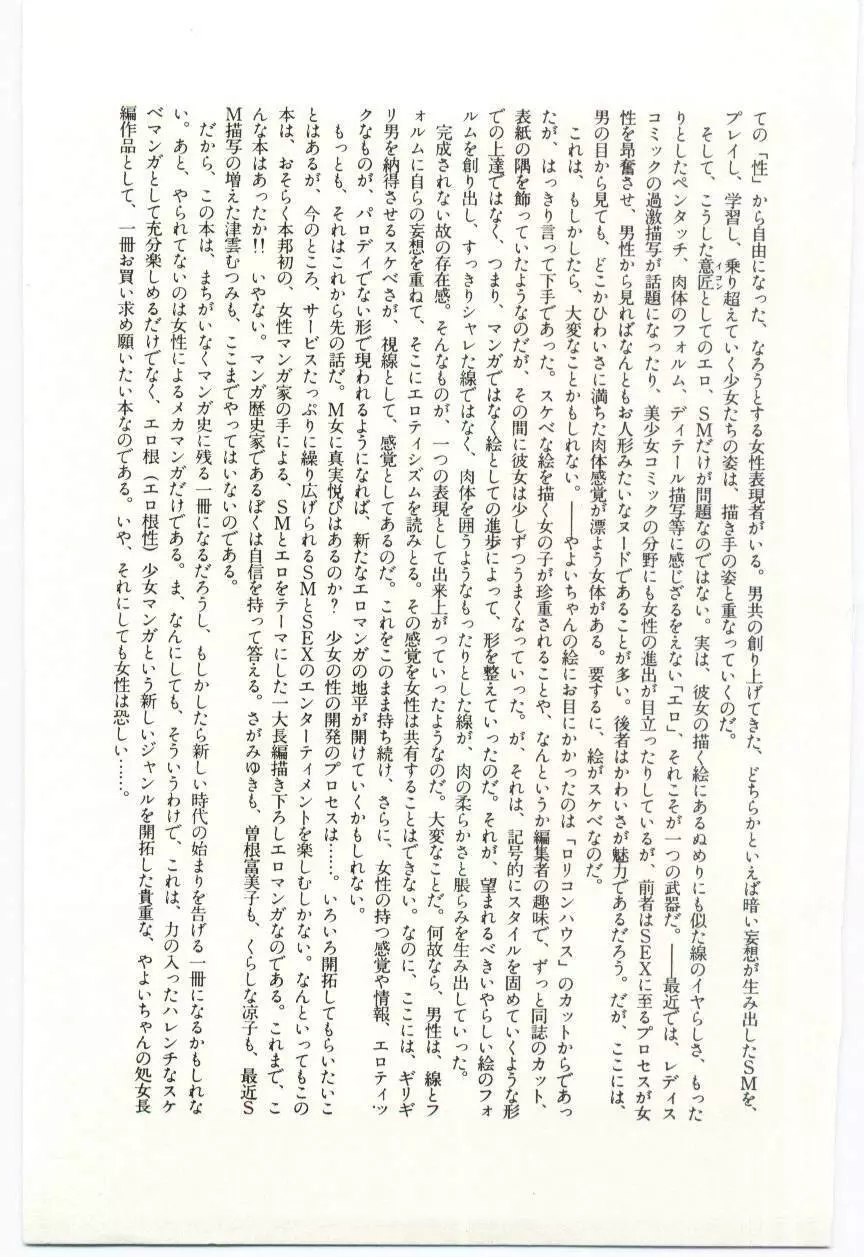 ての「性」から自由になった、なろうとする女性表現者がいる。男共の創り上げてきた、どちらかといえば暗い妄想が生み出したSMを、
プレイし、学習し、乗り超えていく少女たちの姿は、描き手の姿と重なっていくのだ。
そして、こうした意匠（イコン）としてのエロ、SMだけが問題なのではない。実は、彼女の描く絵にあるぬめりにも似た線のイヤらしさ、もった
りとしたペンタッチ、肉体のフォルム、ディテール描写等に感じざるをえない「エロ」、それこそが一つの武器だ。――最近では、レディス
コミックの過激描写が話題になったり、美少女コミックの分野にも女性の進出が目立ったりしているが、前者はSEXに至るプロセスが女
性を昂奮させ、男性から見ればなんともお人形みたいなヌードであることが多い。後者はかわいさが魅力であるだろう。だが、ここには、
男の目から見ても、どこかひわいさに満ちた肉体感覚が漂よう女体がある。要するに、絵がスケベなのだ。
これは、もしかしたら、大変なことかもしれない。――やよいちゃんの絵にお目にかかったのは「ロリコンハウス」のカットからであっ
たが、はっきり言って下手であった。スケベな絵を描く女の子が珍重されることや、なんというか編集者の趣味で、ずっと同誌のカット、
表紙の隅を飾っていたようなのだが、その間に彼女は少しずつうまくなっていった。が、それは、記号的にスタイルを固めていくような形
での上達ではなく、つまり、マンガではなく絵としての進歩によって、形を整えていったのだ。それが、望まれるべきいやらしい絵のフォ
ルムを創り出し、すっきりシャレた線ではなく、肉体を囲うようなもったりとした線が、肉の柔らかさと脹らみを生み出していった。
完成されない故の存在感。そんなものが、一つの表現として出来上がっていったようなのだ。大変なことだ。何故なら、男性は、線とフ
ォルムに自らの妄想を重ねて、そこにエロティシズムを読みとる。その感覚を女性は共有することはできない。なのに、ここには、ギリギ
リ男を納得させるスケベさが、視線として、感覚としてあるのだ。これをこのまま持ち続け、さらに、女性の持つ感覚や情報、エロティッ
クなものが、パロディでない形で現われるようになれば、新たなエロマンガの地平が開けていくかもしれない。
もっとも、それはこれから先の話だ。M女に真実悦びはあるのか？　少女の性の開発のプロセスは……。いろいろ開拓してもらいたいこ
とはあるが、今のところ、サービスたっぷりに繰り広げられるSMとSEXのエンターティメントを楽しむしかない。なんといってもこの
本は、おそらく本邦初の、女性マンガ家の手による、SMとエロをテーマにした一大長編描き下ろしエロマンガなのである。これまで、こ
んな本はあったか!!　いやない。マンガ歴史家であるぼくは自信を持って答える。さがみゆきも、曽根富美子も、くらしな涼子も、最近S
M描写の増えた津雲むつみも、ここまでやってはいないのである。
だから、この本は、まちがいなくマンガ史に残る一冊になるだろうし、もしかしたら新しい時代の始まりを告げる一冊になるかもしれな
い。あと、やられてないのは女性によるメカマンガだけである。ま、なんにしても、そういうわけで、これは、力の入ったハレンチなスケ
ベマンガとして充分楽しめるだけでなく、エロ根（エロ根性）少女マンガという新しいジャンルを開拓した貴重な、やよいちゃんの処女長
編作品として、一冊お買い求め願いたい本なのである。いや、それにしても女性は恐しい……。